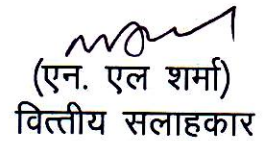 (एन. एल शर्मा)
वित्तीय सलाहकार